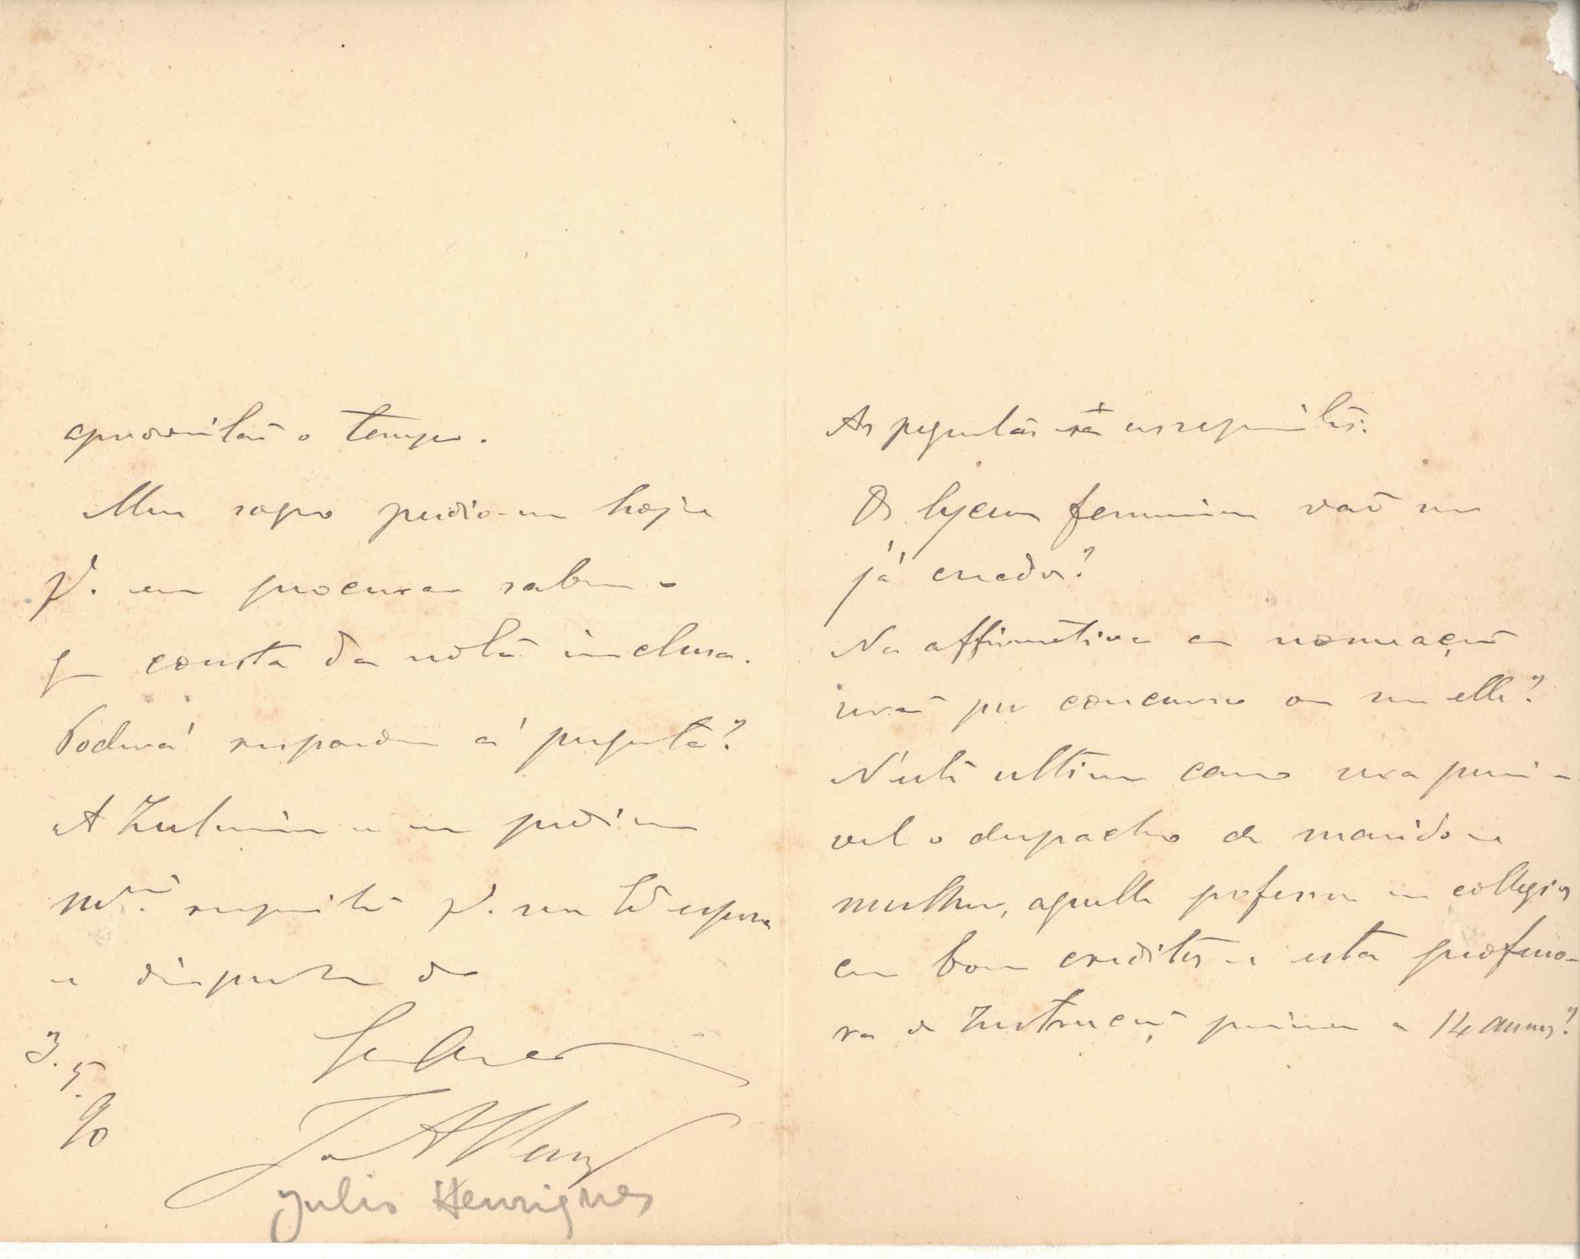 aproveitar o tempo.
Meu sogro pediu-me hoje
p.ª eu procurar saber o
q consta da nota inclusa.
Poderá responder á pergunta?
A Zulmira e eu pedimos
respeitos p.ª sua Ed esposa
e disponha do
3.5.90
J. A. Henriq
Julio Henriques
As perguntas são as seguintes:
Os lyceus femininos vão ser
já creados?
Na affirmativa as nomeações
serão por concurso ou sem elle?
N'este ultimo caso sera possi-
vel o despacho de marido e
mulher, aquelle professor em collegios
com bons creditos e esta professo-
ra de Instrucção prima a 14 annos?